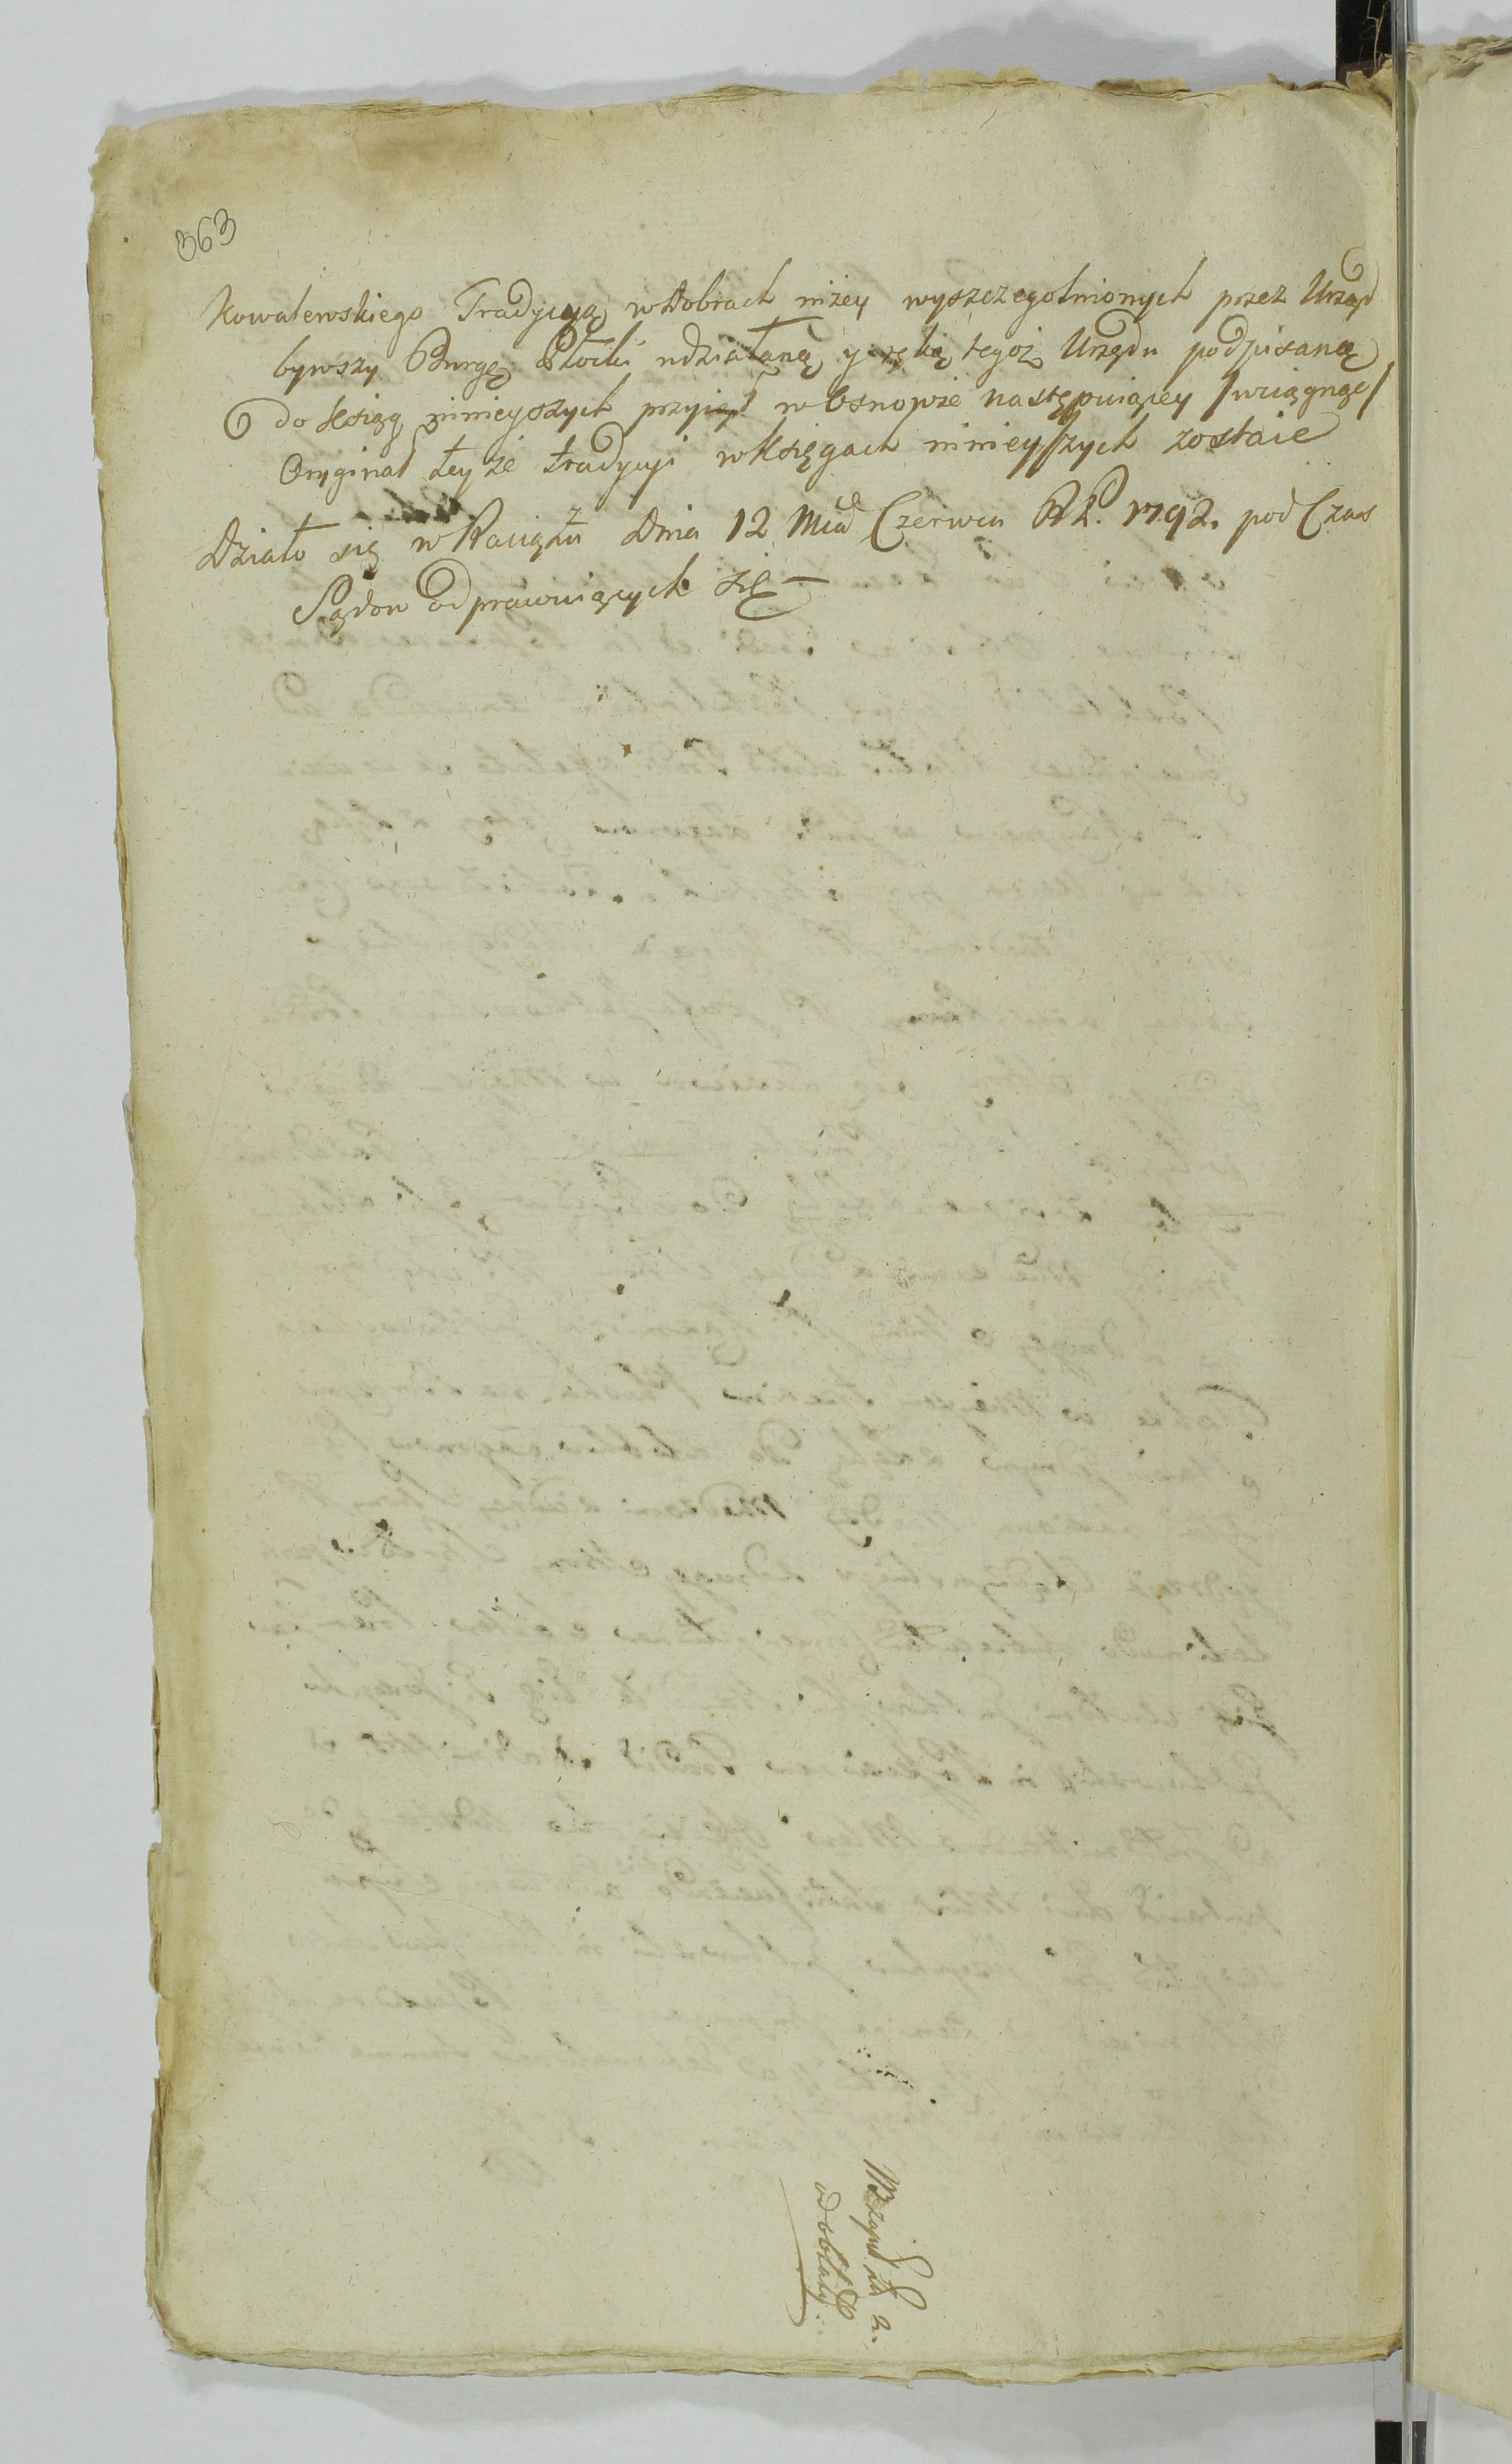 363
Kowalewskiego Tradycyią w Dobrach niżey wyszczegolnionych przez Urząd
bywszy Burgę Płocki udziałaną y ręką tegoż Urzędu podpisaną
do Ksiąg ninieyszych przyiął w Osnowie następuiącey /wciągnąć/
Oryginał teyże tradycyi w Księgach ninieyszych zostaie
Działo się w Raciążu Dnia 12 Mca Czerwca RP. 1792. pod Czas
Sądow odprawuiących się
od oblaty